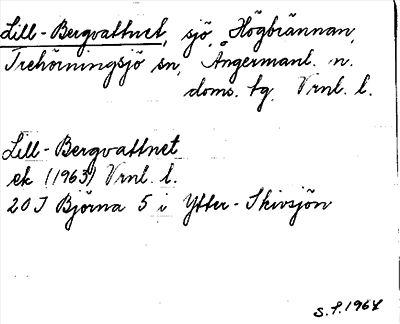 Lill-Bergvattnet, sjö, Högbrännan,
Trehörningsjö sn, Ångermanl. n.
doms. tg, Vrnl. l.
Lill-Bergvattnet
ek (1963) Vrnl. l.
20I Björna 5 i Ytter-Skivsjön
S.P. 1964